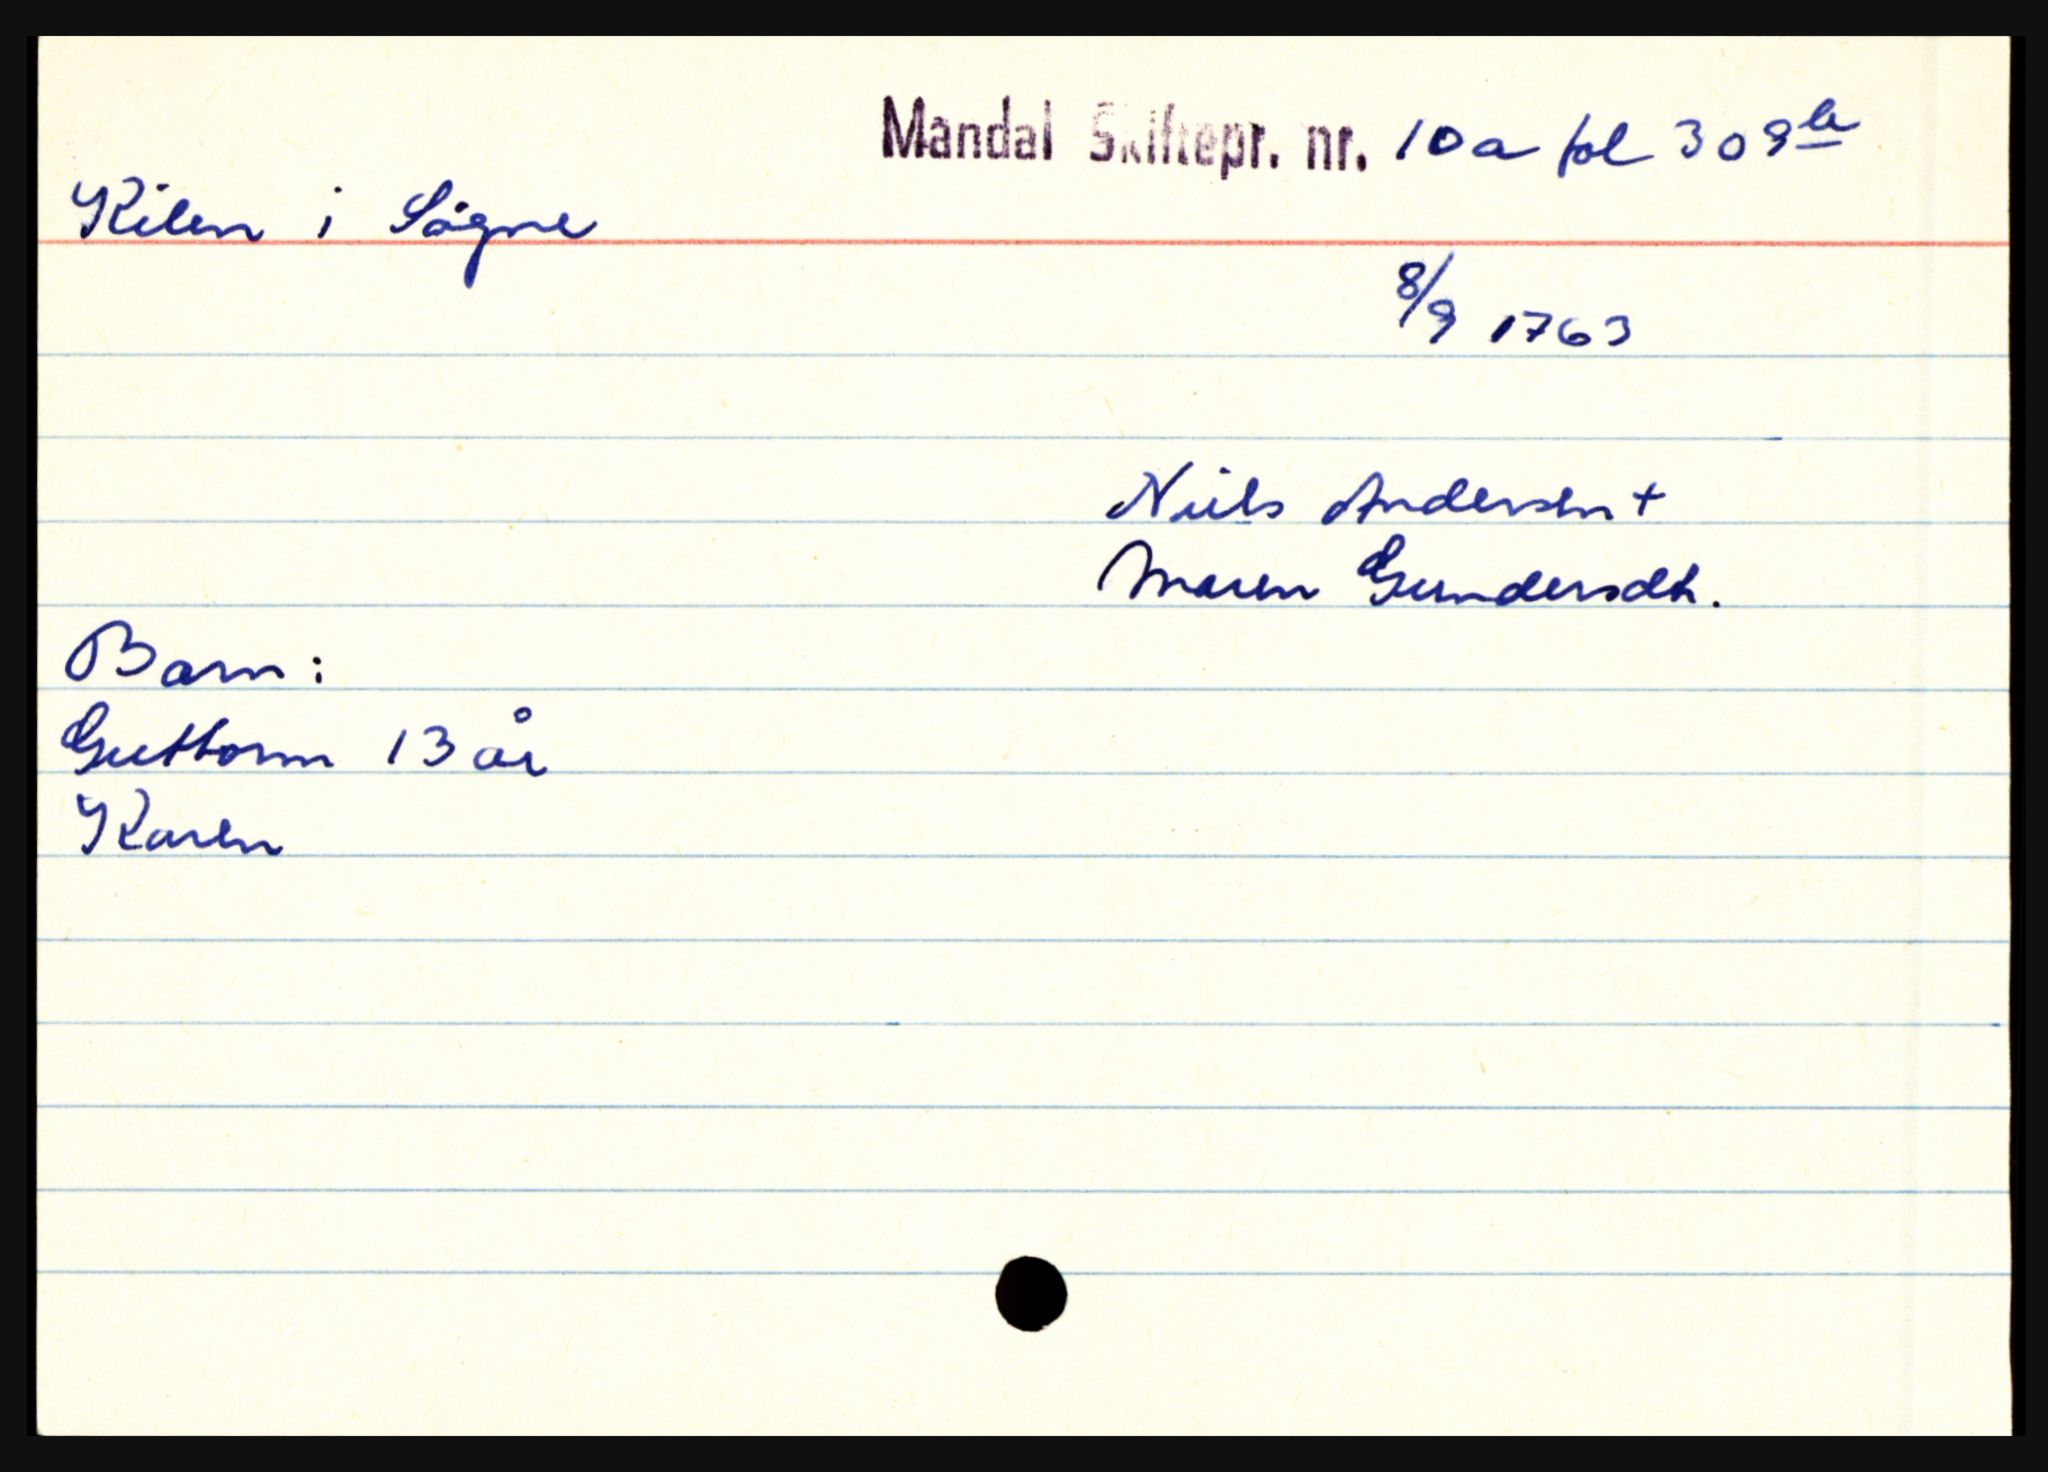 Mandal Skiftepr. nr. 10a fol 309b
Kilen i Søgne
8/9 1763
Niels Andersen +
Maren Gundersdtr.
Barn:
Guttorm 13 år
Karen